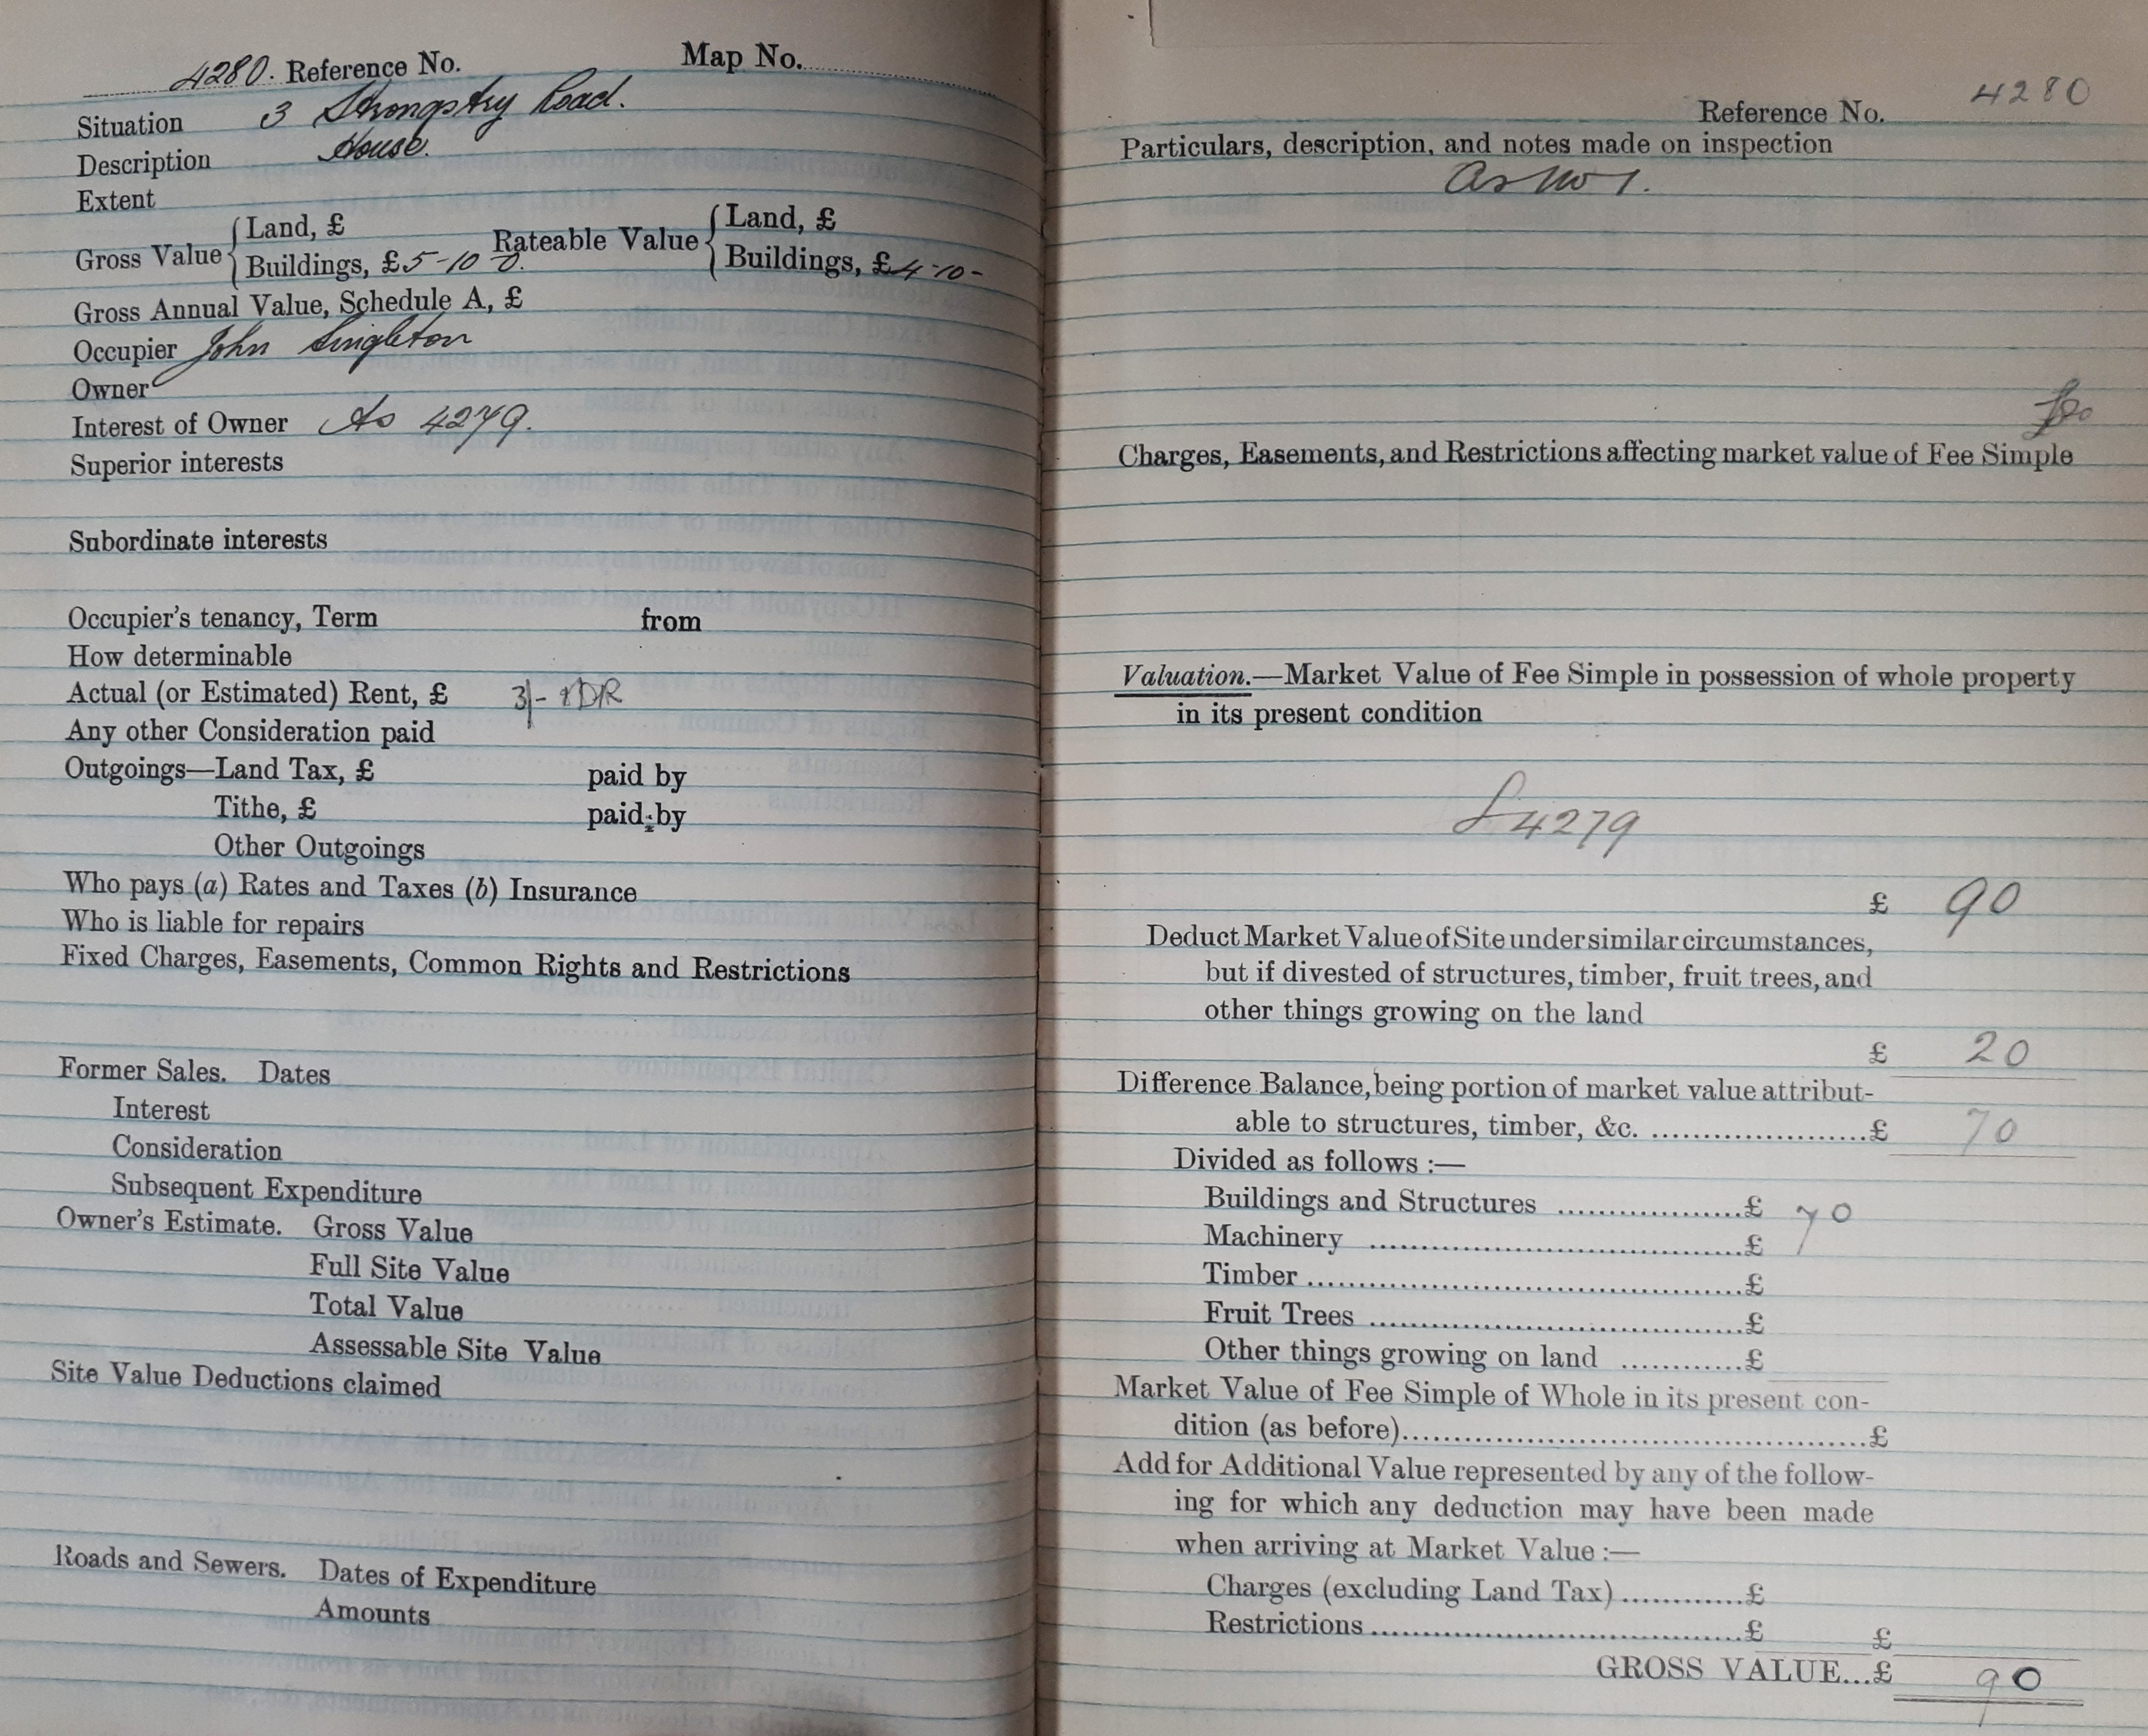 4280. Reference No. Map No.
Situation 3 Strongstry Road.
Description House.
Extent
Gross Value { Land, £
Buildings, £5-10 0. Rateable Value { Land, £
Buildings, £4-10-
Gross Annual Value, Schedule A, £
Occupier John Singleton
Owner
Interest of Owner As 4279.
Superior interests
Subordinate interests
Occupier's tenancy, Term from
How determinable
Actual (or Estimated) Rent, £ 3/-
Any other Consideration paid
Outgoings—Land Tax, £ paid by
Tithe, £ paid by
Other Outgoings
Who pays (a) Rates and Taxes (b) Insurance
Who is liable for repairs
Fixed Charges, Easements, Common Rights and Restrictions
Former Sales. Dates
Interest
Consideration
Subsequent Expenditure
Owner's Estimate. Gross Value
Full Site Value
Total Value
Assessable Site Value
Site Value Deductions claimed
Roads and Sewers. Dates of Expenditure
Amounts
Reference No. 4280
Particulars, description, and notes made on inspection
As No 1.
Charges, Easements, and Restrictions affecting market value of Fee Simple
Valuation.—Market Value of Fee Simple in possession of whole property
in its present condition
4279
£ 90
Deduct Market Value of Site under similar circumstances,
but if divested of structures, timber, fruit trees, and
other things growing on the land
£ 20
Difference Balance, being portion of market value attribut-
able to structures, timber, &c. ......................£ 70
Divided as follows :—
Buildings and Structures ...................£ 70
Machinery ......................................£
Timber.............................................£
Fruit Trees ......................................£
Other things growing on land ............£
Market Value of Fee Simple of Whole in its present con-
dition (as before)................................................£
Add for Additional Value represented by any of the follow-
ing for which any deduction may have been made
when arriving at Market Value :—
Charges (excluding Land Tax)............£
Restrictions......................................£ £
GROSS VALUE...£ 90